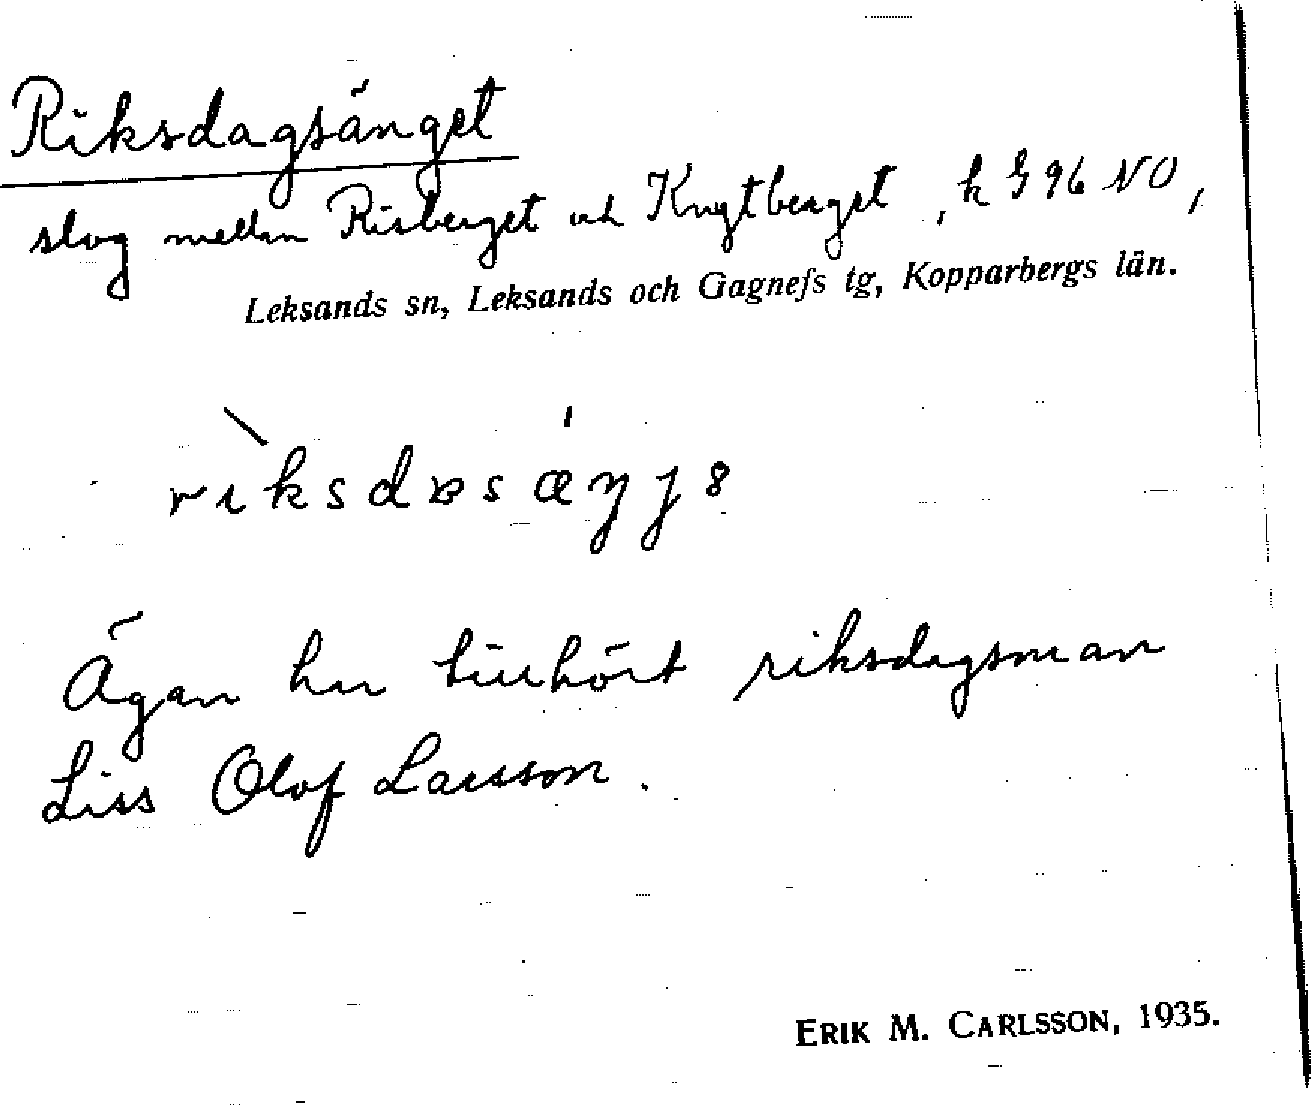 Riksdagsänget
slog mellan Risberget och Knytberget, k G 96 NO,
Leksands sn, Leksands och Gagnefs tg, Kopparbergs län.
Ägan har tillhört riksdagsman
Liss Olof Larsson.
ERIK M. CARLSSON, 1935.